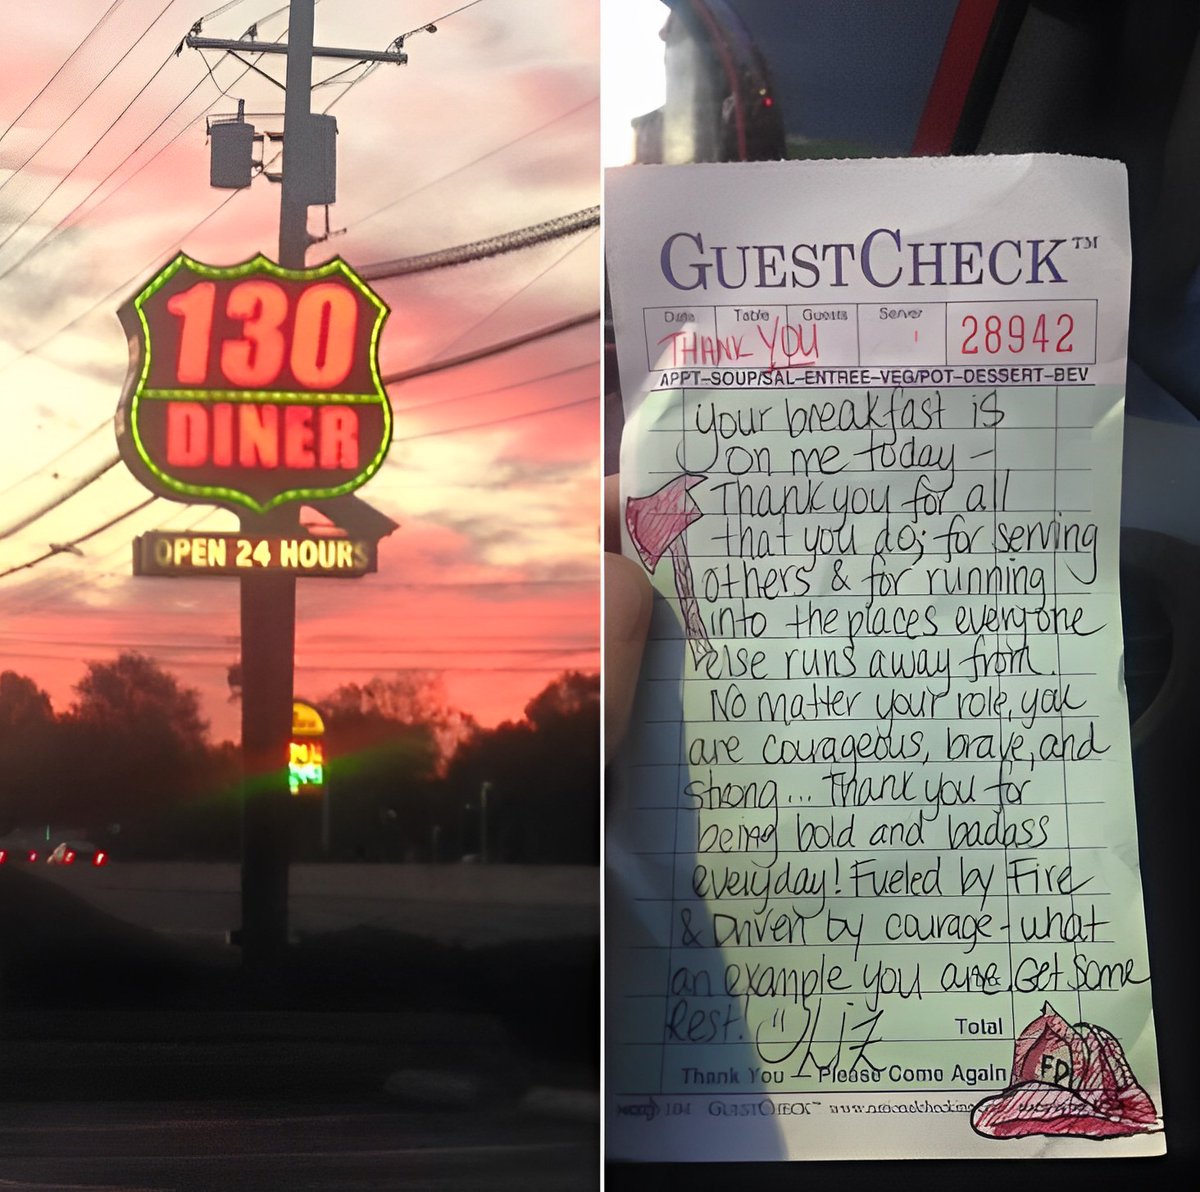 130
DINER
OPEN 24 HOURS
GUESTCHECK™
Date Table Guests Server
THANK YOU
28942
APPT-SOUP/SAL-ENTREE-VEG/POT-DESSERT-BEV
Your breakfast is
on me today -
Thank you for all
that you do; for serving
others & for running
into the places everyone
else runs away from.
No matter your role, you
are courageous, brave, and
strong... Thank you for
being bold and badass
everyday! Fueled by Fire
& Driven by courage - what
an example you are. Get Some
Rest! Liz
Total
FD
Thank You — Please Come Again
104 GUESTCHECK™